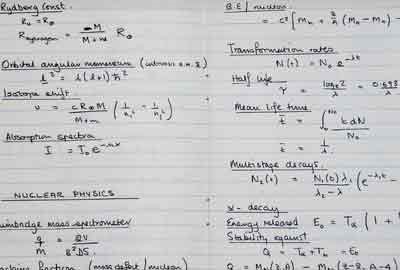 Rydberg Const.
R₀ = R∞
R hydrogen = M / M+m R∞
Orbital angular momentum (intrinsic
l² = l(l+1)ħ²
Isotope shift.
υ = cR∞M / M+m (1/n₁² - 1/n₂²)
Absorption spectra
I = I₀e
NUCLEAR PHYSICS
mass spectrometer
q/m =
fraction (mass defect / nucleon)
B.E / nucleon
= c² [Mₙ +
Transformation rates
N(t) = N₀ e^-λt
Half life
τ = logₑ2 / λ = 0.693
Mean life time
t̄ = ∫ t dN / N₀
t̄ = 1/λ
Multistage decays
N₂(t) = N₁(0) λ₁ / λ₂ - λ₁ (e^-λ₁t -
α - decay
Energy released E₀ = Tα (1 +
Stability against
Q = Tα + Tₕ = E₀